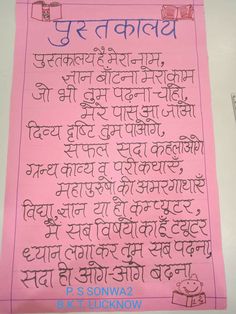 पुस्तकालय
पुस्तकालय है मेरा नाम,
ज्ञान बाँटना मेरा काम
जो भी तुम पढ़ना चाहो,
मेरे पास आ जाओ
दिव्य दृष्टि तुम पाओगे,
सफल सदा कहलाओगे
ग्रन्थ काव्य व परीकथाएँ,
महापुरुषों की अमरगाथाएँ
विद्या, ज्ञान या हो कम्प्यूटर,
मैं सब विषयों का हूँ ट्यूटर
ध्यान लगा कर तुम सब पढ़ना,
सदा ही आगे-आगे बढ़ना
P S SONWA2
B.K.T. LUCKNOW